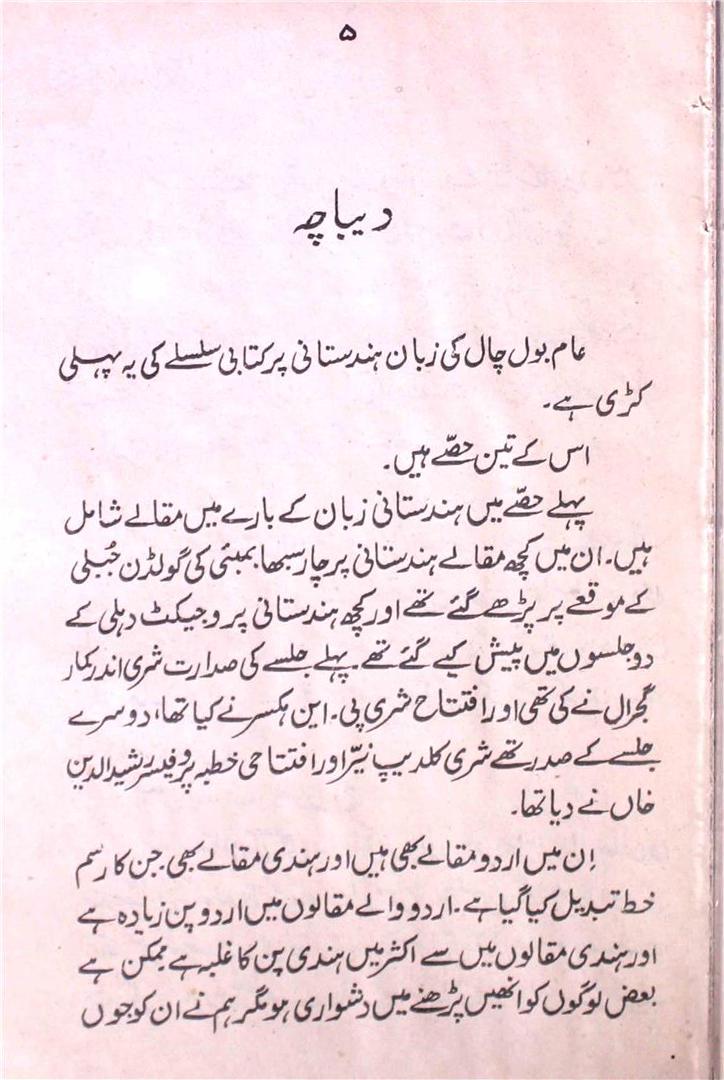 ۵
دیباچہ
عام بول چال کی زبان ہندستانی پر کتابی سلسلے کی یہ پہلی
کڑی ہے۔
اس کے تین حصّے ہیں۔
پہلے حصّے میں ہندستانی زبان کے بارے میں مقالے شامل
ہیں۔ ان میں کچھ مقالے ہندستانی پرچار سبھا بمبئی کی گولڈن جُبلی
کے موقعے پر پڑھے گئے تھے اور کچھ ہندستانی پروجیکٹ دہلی کے
دو جلسوں میں پیش کیے گئے تھے۔ پہلے جلسے کی صدارت شری اندر کمار
گجرال نے کی تھی اور افتتاح شری پی۔ این ہکسر نے کیا تھا، دوسرے
جلسے کے صدر تھے شری کلدیپ نیّر اور افتتاحی خطبہ پروفیسر رشیدالدین
خاں نے دیا تھا۔
اِن میں اردو مقالے بھی ہیں اور ہندی مقالے بھی جن کا رسم
خط تبدیل کیا گیا ہے۔ اردو والے مقالوں میں اردو پن زیادہ ہے
اور ہندی مقالوں میں سے اکثر میں ہندی پن کا غلبہ ہے ممکن ہے
بعض لوگوں کو انھیں پڑھنے میں دشواری ہو مگر ہم نے ان کو جوں